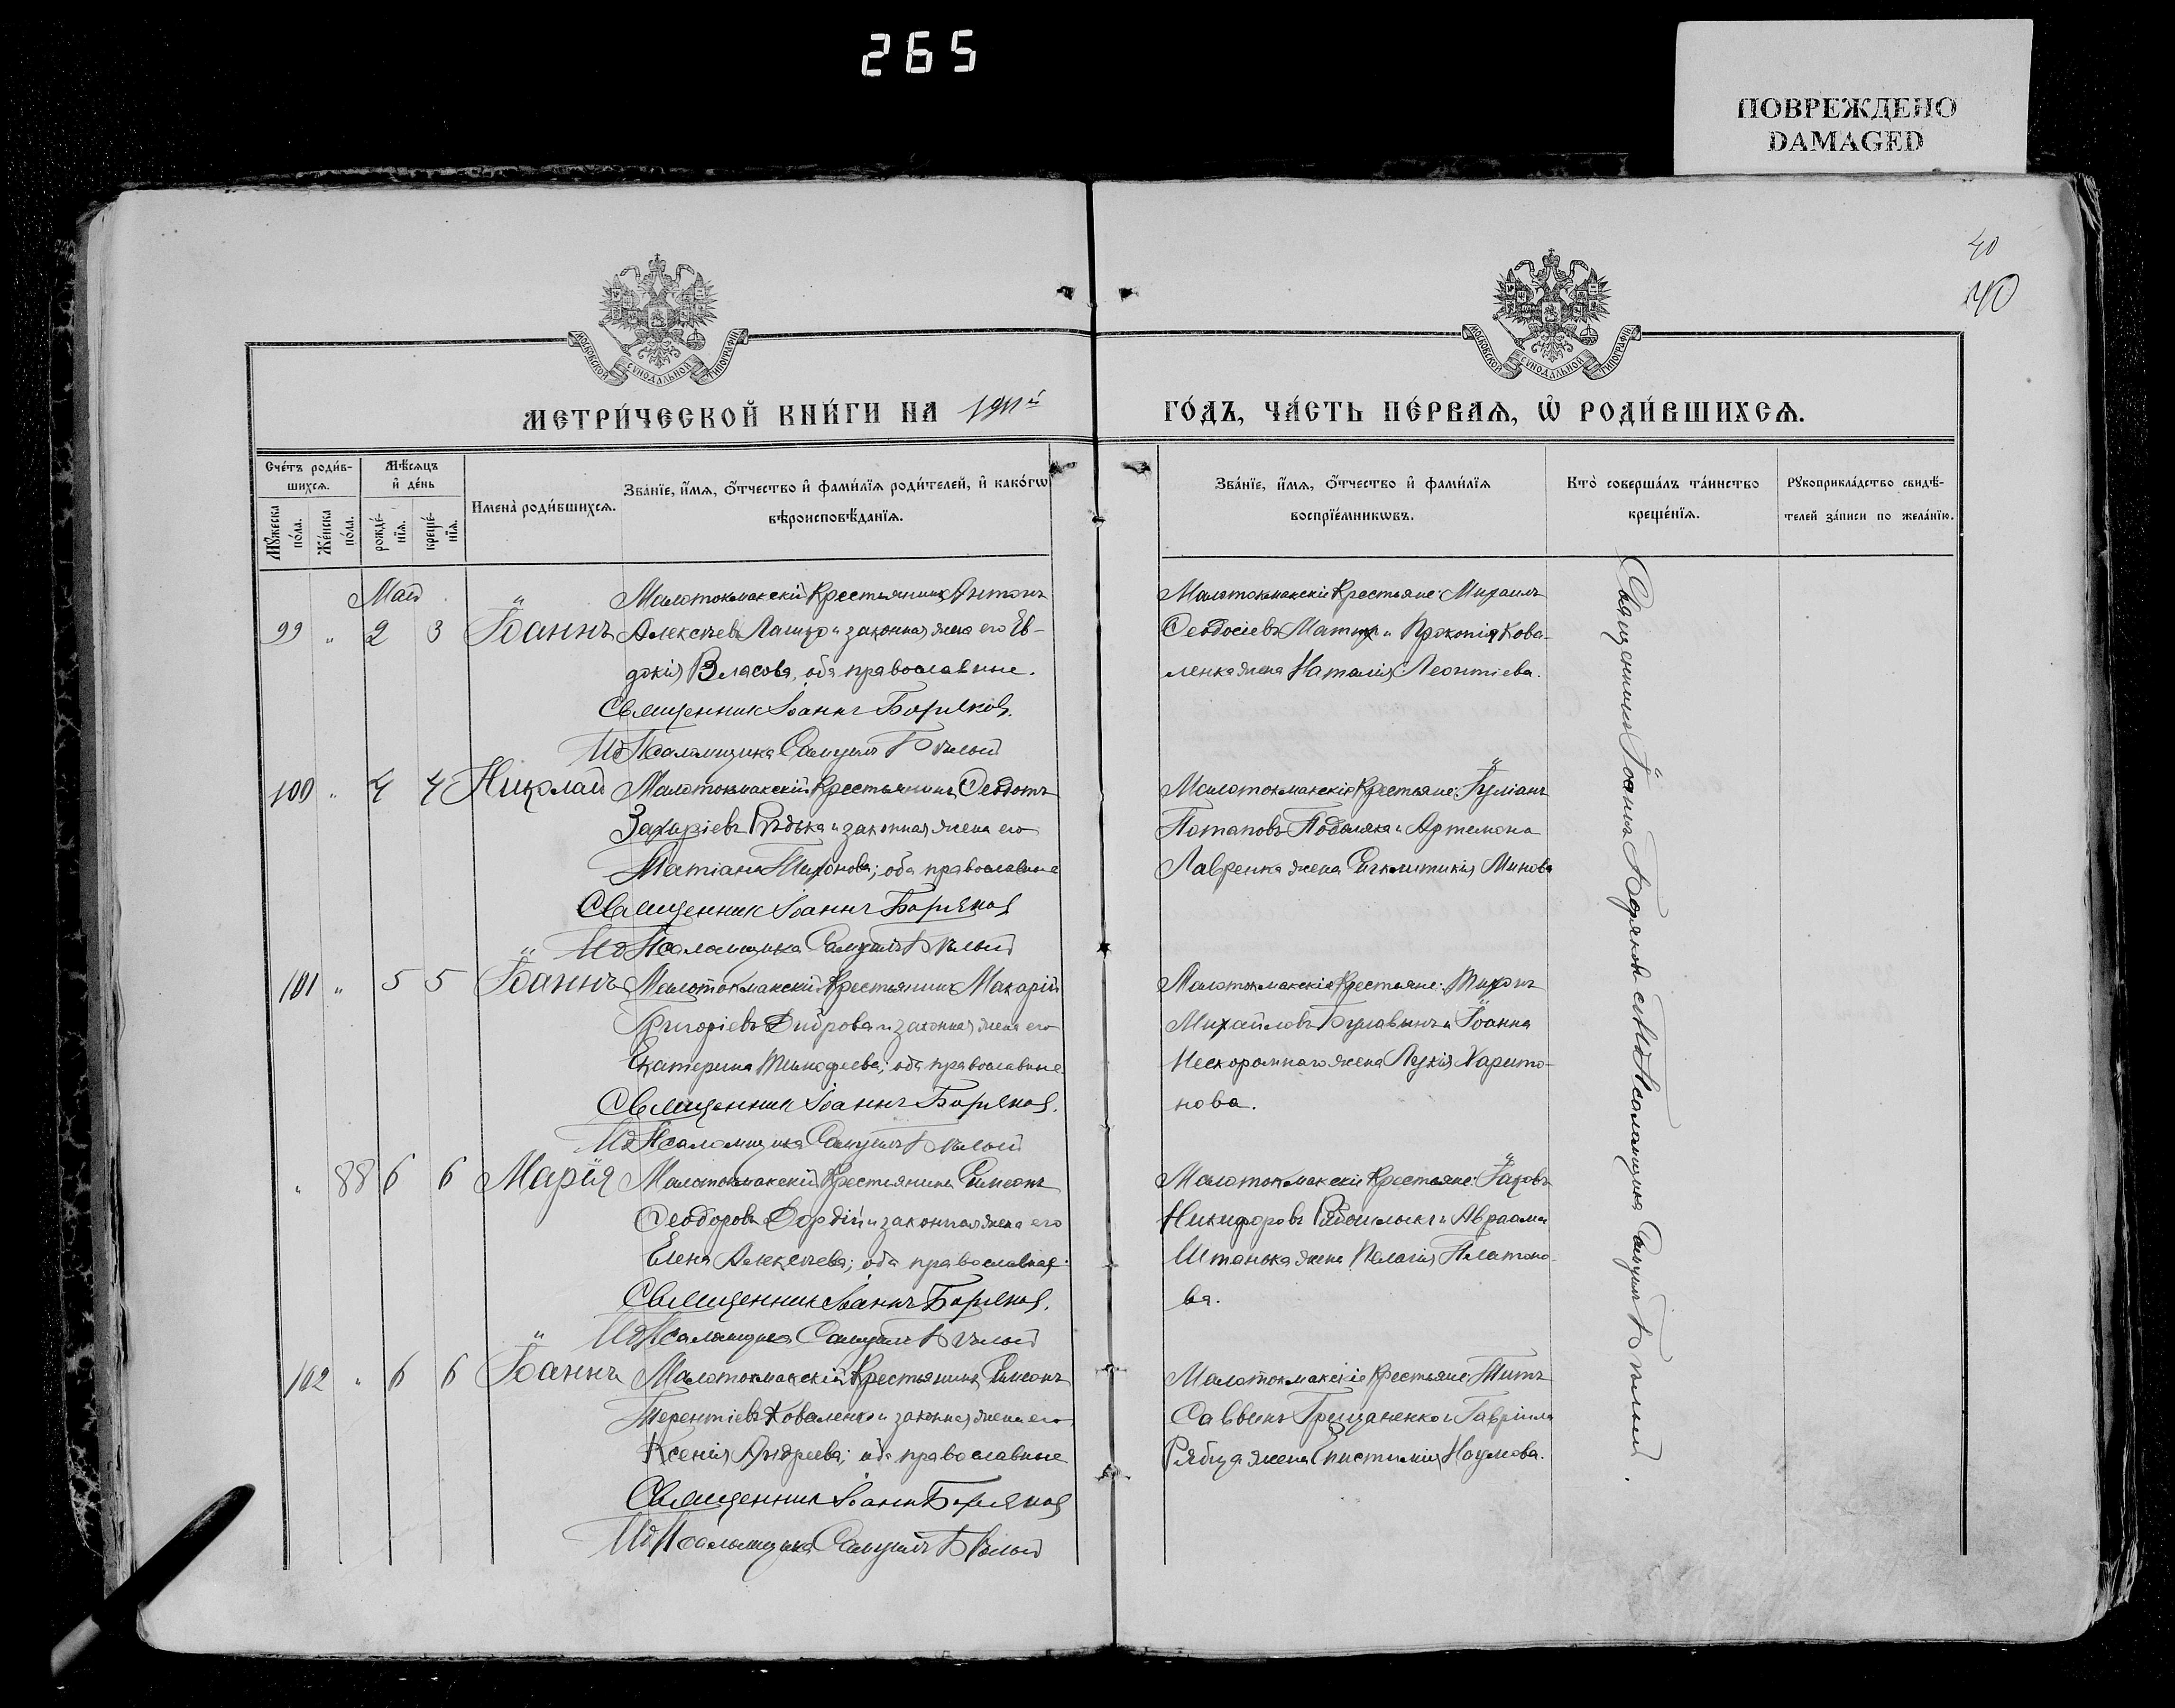 265
ПОВРЕЖДЕНО
DAMAGED
40
40
МОСКОВСКОЙ СѴНОДАЛЬНОЙ ТИПОГРАФІИ
МОСКОВСКОЙ СѴНОДАЛЬНОЙ ТИПОГРАФІИ
МЕТРИ́ЧЕСКОЙ КНИ́ГИ НА 1911й
ГО́ДЪ, ЧА́СТЬ ПЕ́РВАѦ, Ѡ҆ РОДИ́ВШИХСѦ.
Сче́тъ роди́вшихсѧ.
Мꙋ́жеска по́ла.
Же́нска по́ла.
Мѣ́сѧцъ и҆ де́нь
рожде́нїѧ.
креще́нїѧ.
Имена̀ роди́вшихсѧ.
Зва́нїе, и҆́мѧ, ѻ҆́тчество и҆ фами́лїѧ роди́телей, и҆ како́гѡ
вѣроисповѣ́данїѧ.
Зва́нїе, и҆́мѧ, ѻ҆́тчество и҆ фами́лїѧ
воспрїе́мникѡвъ.
Кто̀ соверша́лъ та́инство
креще́нїѧ.
Рꙋкоприкла́дство свидѣ́-
телей за́писи по жела́нїю.
Май
99 " 2 3 Іоаннъ
Малотокмакскій Крестьянинъ Антонъ
Алексѣевъ Лашко и законная жена его Ев-
докія Власова, оба православные.
Священник Іоаннъ Боряков.
Ид Псаломщика Самуилъ Бѣлый
Малотокмакскіе Крестьяне: Михаилъ
Ѳеодосіевъ и Прокопія Кова-
ленка жена Наталія Леонтіева.
100 " 4 4 Николай
Малотокмакскій Крестьянинъ Ѳеодотъ
Захаріевъ Рѣдька и законная жена его
Татіана Тихонова; оба православные
Священник Іоаннъ Боряков
Ид Псаломщика Самуилъ Бѣлый
Малотокмакскіе Крестьяне: Іуліанъ
Потаповъ Подоляка и Артемона
Лавренка жена Минова
101 " 5 5 Іоаннъ
Малотокмакскій Крестьянинъ Макарій
Григоріевъ Диброва и законная жена его
Екатерина Тимофеева; оба православные.
Священник Іоаннъ Боряков.
Ид Псаломщика Самуилъ Бѣлый
Малотокмакскіе Крестьяне: Тихонъ
Михайловъ Булавинъ и Іоанна
Нескоромнаго жена Лукія Харито-
нова.
" 88 6 6 Марія
Малотокмакскій Крестьянинъ Симеонъ
Ѳеодоровъ Дордій и законная жена его
Елена Алексѣева; оба православные.
Священник Іоаннъ Боряков.
Ид Псаломщика Самуилъ Бѣлый
Малотокмакскіе Крестьяне: Іаковъ
Никифоровъ и Авраама
Штанька жена Пелагія Платоно-
ва.
102 " 6 6 Іоаннъ
Малотокмакскій Крестьянинъ Симеонъ
Терентіевъ Коваленко и законная жена его
Ксенія Андреева; оба православные
Священник Іоаннъ Боряков
Ид Псаломщика Самуилъ Бѣлый
Малотокмакскіе Крестьяне: Титъ
Саввинъ Грищаненко и Гавріила
Рябца жена Епистимія Наумова.
Священникъ Іоаннъ Боряковъ с Ид Псаломщика Самуилъ Бѣлый.